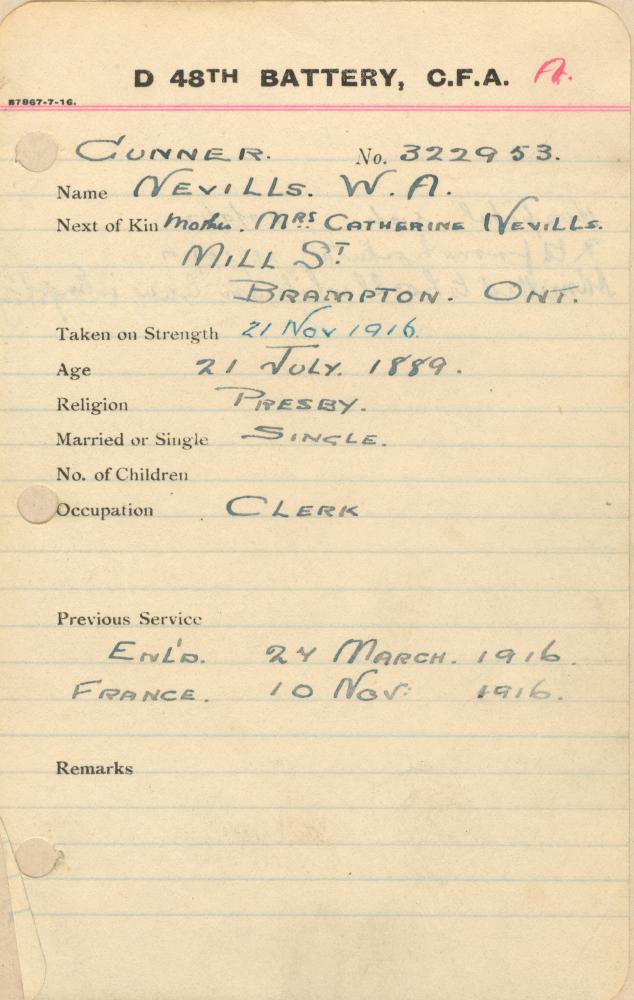 D 48TH BATTERY, C.F.A. A.
87867-7-16.
GUNNER. No. 322953.
Name NEVILLS. W. A.
Next of Kin Mother. MRS CATHERINE NEVILLS.
MILL ST
BRAMPTON. ONT.
Taken on Strength 21 NOV 1916.
Age 21 JULY. 1889.
Religion PRESBY.
Married or Single SINGLE.
No. of Children
Occupation CLERK
Previous Service
ENL'D. 24 MARCH. 1916.
FRANCE. 10 NOV: 1916.
Remarks